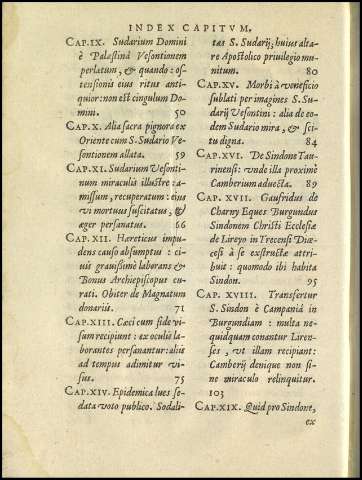 INDEX CAPITVM.
CAP. IX. Sudarium Domini
è Palæstina Vesontionem
perlatum, & quando: os-
tensionis eius ritus anti-
quior: non est cingulum Do-
mini. 50
CAP. X. Alia sacra pignora ex
Oriente cum S. Sudario Ve-
sontionem allata. 59
CAP. XI. Sudarium Vesonti-
num miraculis illustre: a-
missum, recuperatum: eius
vi mortuus suscitatus, &
æger persanatus. 66
CAP. XII. Hæreticus impu-
dens causo absumptus: ci-
uis grauissimè laborans &
Bonus Archiepiscopus cu-
rati. Obiter de Magnatum
donariis. 71
CAP. XIII. Cæci cum fide vi-
sum recipiunt: ex oculis la-
borantes persanantur: aliis
ad tempus adimitur vi-
sus. 75
CAP. XIV. Epidemica lues se-
data voto publico. Sodali-
tas S. Sudarij, huius alta-
re Apostolico priuilegio mu-
nitum. 80
CAP. XV. Morbi à veneficio
sublati per imagines S. Su-
darij Vesontini: alia de eo-
dem Sudario mira, & sci-
tu digna. 84
CAP. XVI. De Sindone Tau-
rinensi: vnde illa proximè
Camberium aduecta. 89
CAP. XVII. Gaufridus de
Charny Eques Burgundus
Sindonem Christi Ecclesiæ
de Lireyo in Trecensi Diœ-
cesi à se exstructæ attri-
buit: quomodo ibi habita
Sindon. 95
CAP. XVIII. Transfertur
S. Sindon è Campania in
Burgundiam: multa ne-
quidquam conantur Liren-
ses, vt illam recipiant:
Camberij denique non si-
ne miraculo relinquitur.
103
CAP. XIX. Quid pro Sindone,
ex